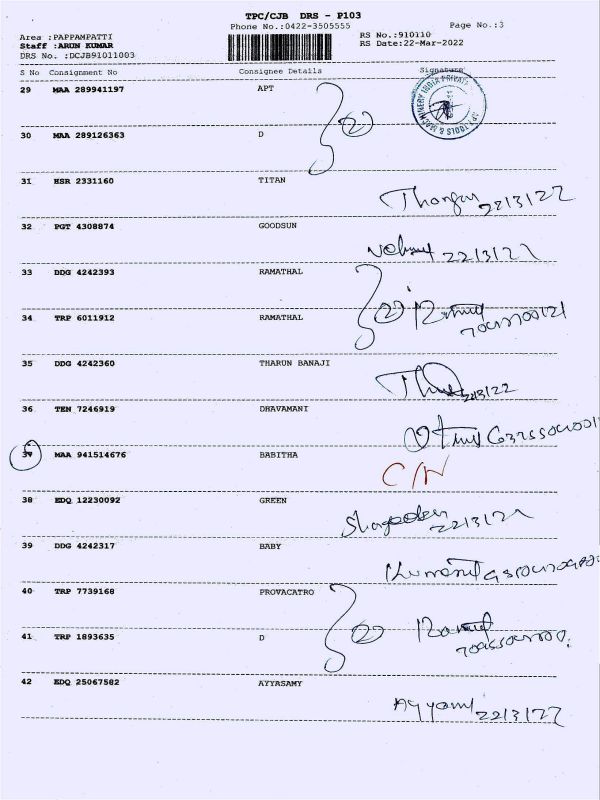 TPC/CJB DRS - P103
Phone No.:0422-3505555 Page No.:3
Area :PAPPAMPATTI RS No.:910110
Staff :ARUN KUMAR RS Date:22-Mar-2022
DRS No. :DCJB91011003
S No Consignment No Consignee Details Signature
29 MAA 289941197 APT
2
30 MAA 289126363 D
31 HSR 2331160 TITAN
22/3/22
32 PGT 4308874 GOODSUN
22/3/22
33 DDG 4242393 RAMATHAL
2
34 TRP 6011912 RAMATHAL
35 DDG 4242360 THARUN BANAJI
22/3/22
36 TEN 7246919 DHAVAMANI
MAA 941514676 BABITHA
C/N
38 EDQ 12230092 GREEN
22/3/22
39 DDG 4242317 BABY
40 TRP 7739168 PROVACATRO
2
41 TRP 1893635 D
42 EDQ 25067582 AYYASAMY
22/3/22